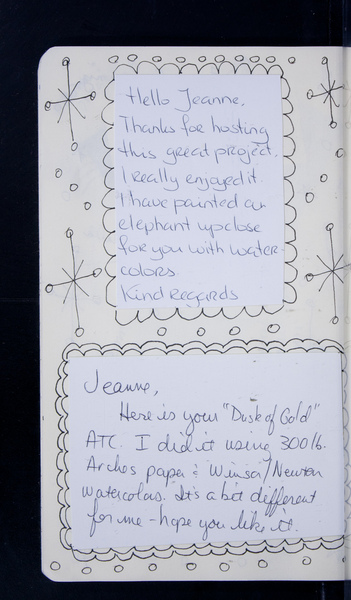 Hello Jeanne,
Thanks for hosting
this great project.
I really enjoyed it.
I have painted an
elephant up close
for you with water-
colors.
Kind Regards
Jeanne,
Here is your "Dusk of Gold"
ATC. I did it using 300lb.
Arches paper & Winsor/Newton
watercolors. It's a bit different
for me - hope you like it.